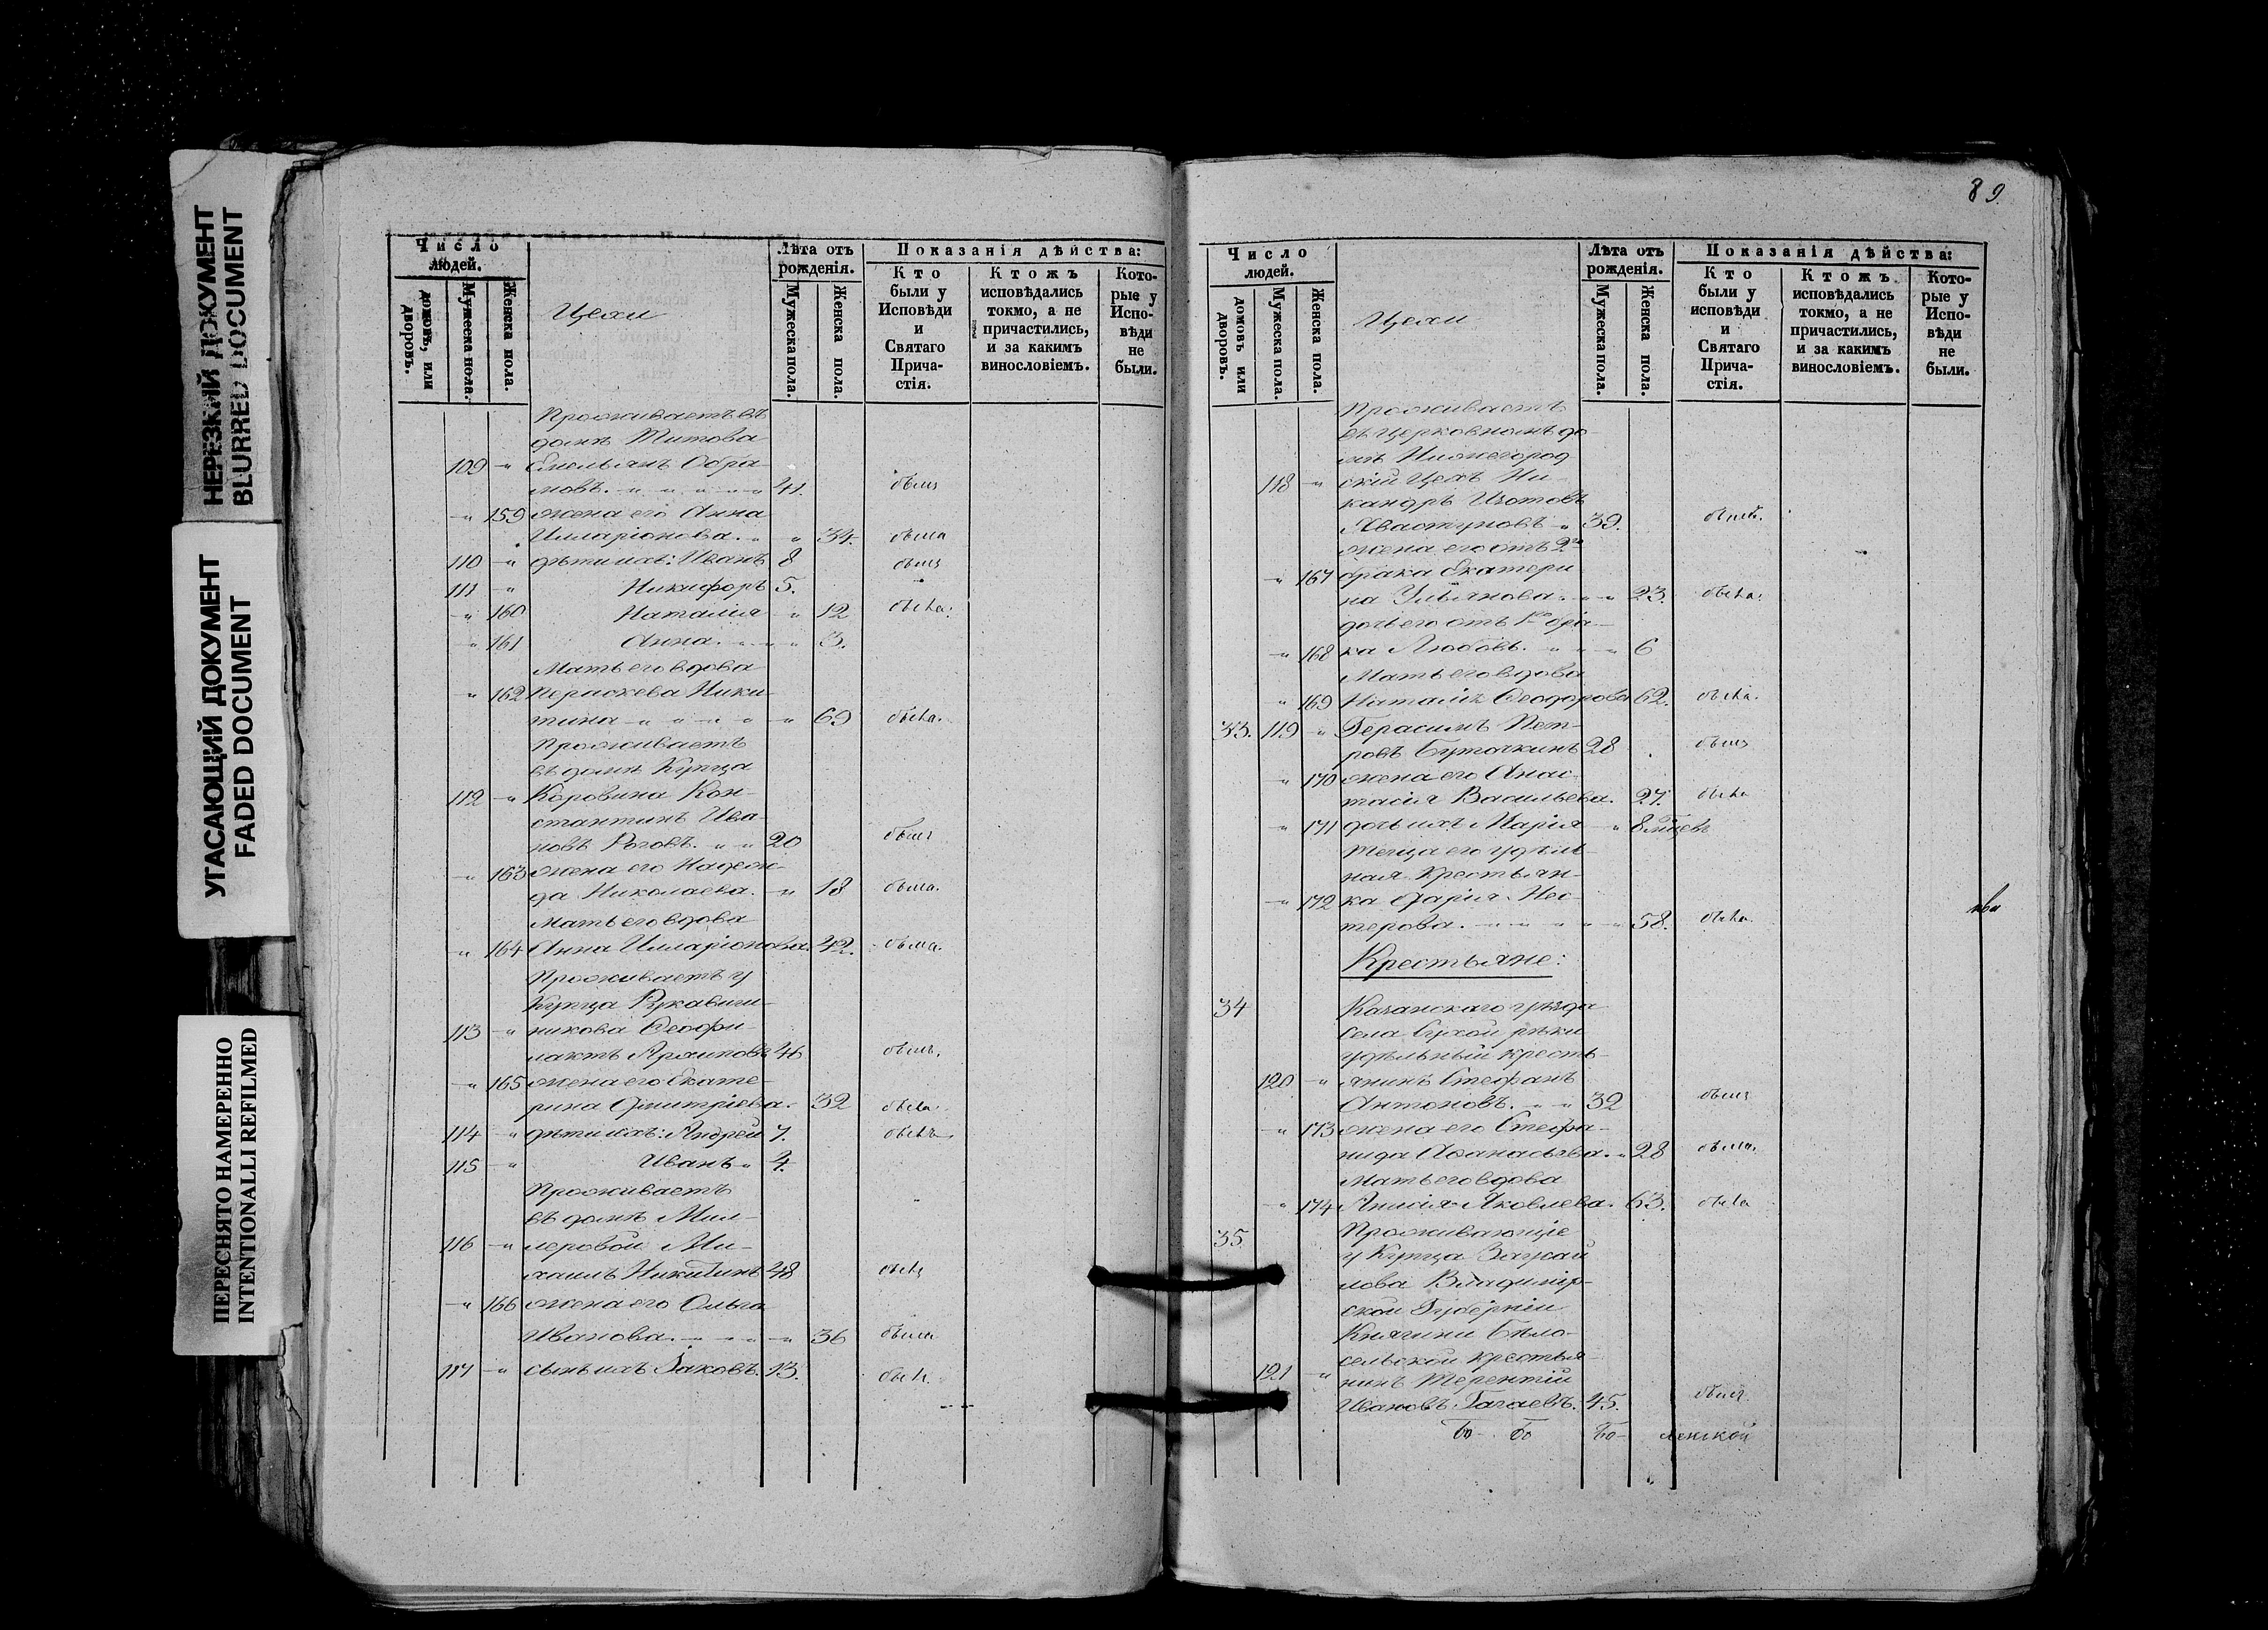 НЕРЕЗКИЙ ДОКУМЕНТ
BLURRED DOCUMENT
УГАСАЮЩИЙ ДОКУМЕНТ
FADED DOCUMENT
ПЕРЕСНЯТО НАМЕРЕННО
INTENTIONALLI REFILMED
Число людей.
домовъ, или дворовъ.
Мужеска пола.
Женска пола.
Цехи
Лѣта отъ рожденія.
Мужеска пола.
Женска пола.
Показанія дѣйства:
Кто были у Исповѣди и Святаго Прича-стія.
Ктожъ исповѣдались токмо, а не причастились, и за какимъ винословіемъ.
Кото-рые у Испо-вѣди не были.
Проживаетъ въ
домѣ Титова
109 " Емельянъ Абра-
мовъ. " " " " " 41. былъ
" 159 жена его Анна
Илларіонова. " " 34. была
110 " дѣти ихъ: Иванъ 8 былъ
111 " Никифоръ 5.
" 160 Наталія " 12 была.
" 161 Анна. " " " 3.
Мать его вдова
" 162 Параскева Ники-
тина " " " " " 69 была.
Проживаетъ
въ домѣ Купца
112 " Коровина Кон-
стантинъ Ива-
новъ Роговъ. " " 20 былъ
" 163 жена его Надеж-
да Николаева. " 18 была.
Мать его вдова
" 164 Анна Илларіонова. 42. была.
Проживаетъ у
Купца Рукавиш-
113 " никова Ѳеофи-
лактъ Архиповъ 46 былъ.
" 165 жена его Екате-
рина Дмитріева. 32 была.
114 " дѣти ихъ: Андрей 7. былъ.
115 " Иванъ " 4.
Проживаетъ
въ домѣ Мил-
116 " леровой Ми-
хаилъ Никитинъ 48 былъ
" 166 жена его Ольга
Иванова. " " " " 36 была
117 " сынъ ихъ Іаковъ. 13. былъ.
89
Число людей.
домовъ или дворовъ.
Мужеска пола.
Женска пола.
Цехи
Лѣта отъ рожденія.
Мужеска пола.
Женска пола.
Показанія дѣйства:
Кто были у исповѣди и Святаго Прича-стія.
Ктожъ исповѣдались токмо, а не причастились, и за какимъ винословіемъ.
Кото-рые у Испо-вѣди не были.
Проживаетъ
въ Церковномъ до-
мѣ Нижегород
118 " скій Цехъ Ни-
кандръ Изотовъ
Хвастуновъ " 39. былъ.
жена его отъ 2го
" 167 брака Екатери
на Ульянова. " " 23. была.
дочь его отъ 1го бра-
" 168 ка Любовь. " " " 6
Мать его вдова
" 169 Наталія Ѳеодорова 62. была.
33. 119 " Герасимъ Пет-
ровъ Буточкинъ 28 былъ
" 170 жена его Анас-
тасія Васильева. 27. была
" 171 дочь ихъ Марія " 8 мѣсяц
Теща его удѣль-
ная крестьян-
" 172 ка Дарія Нес-
терова. " " " " " 58. была.
Крестьяне:
34 Казанскаго уѣзда
Села Сухой рѣки
удѣльный кресть-
120 " янинъ Стефанъ
Антоновъ. " " 32 былъ
" 173 жена его Степа-
нида Аѳанасьева. " 28 была.
Мать его вдова
" 174 Анисія Яковлева. 63. была
35. Проживающіе
у Купца
Владимір-
ской Губерніи
Княгини Бѣло-
сельской крестья-
121 " нинъ Терентій
Ивановъ Гагаевъ. 45. былъ.
Бо- Бо Бо-